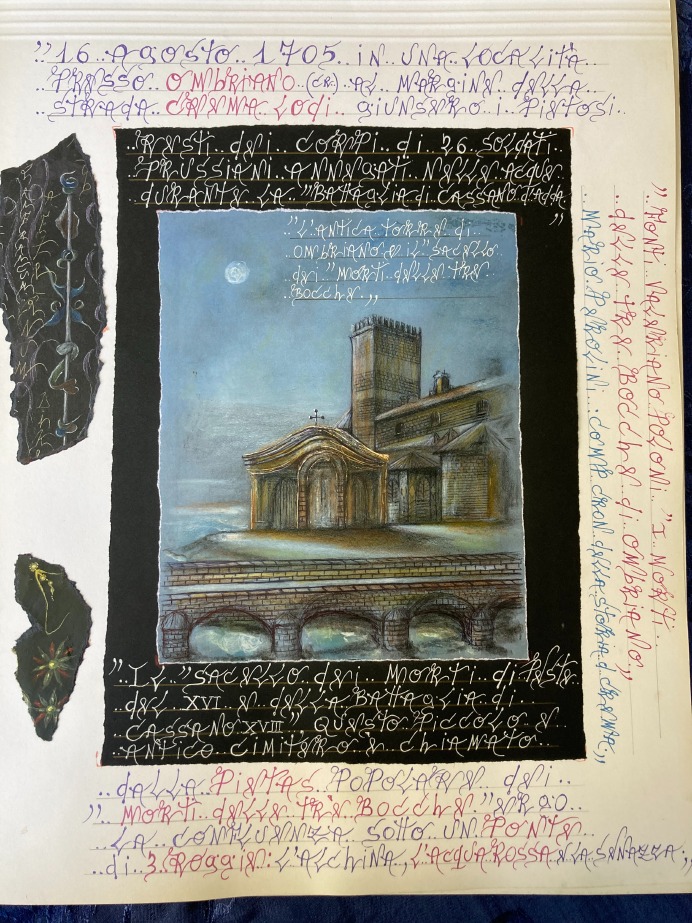 ”16 AGOSTO 1705 IN UNA LOCALITÀ
PRESSO OMBRIANO (CR) AL MARGINE DELLA
STRADA CREMA LODI GIUNSERO I PIETOSI
RESTI dEi CORPI di 26 SOLdATI
PRUSSIANI ANNEGATI NELLE ACQUE
dURANTE LA "BATTAGLIA di CASSANO d'AddA
”
"L'ANTICA TORRE di
OMBRIANO E iL "SACELLO
dEi "MORTI dELLE TRE
BOCCHE„
”IL "SACELLO dEi MORTI di PESTE
dEL XVI E dELLA BATTAGLIA di
CASSANO XVIII" QUESTO PICCOLO E
ANTICO CIMITERO È CHIAMATO
dALLA PIETAS POPOLARE dEi
” MORTI dELLE TRE BOCCHE" ERGO
LA CONFLUENZA SOTTO UN PONTE
di 3 ROGGIE: L'ALCHINA, L'ACQUAROSSA E LA SENAZZA„
”FONTI VALERIANO POLONI "I MORTI
dELLE TRE BOCCHE di OMBRIANO„
MARIO PEROLINI: COMP. CRON. dELLA STORIA d. CREMA„